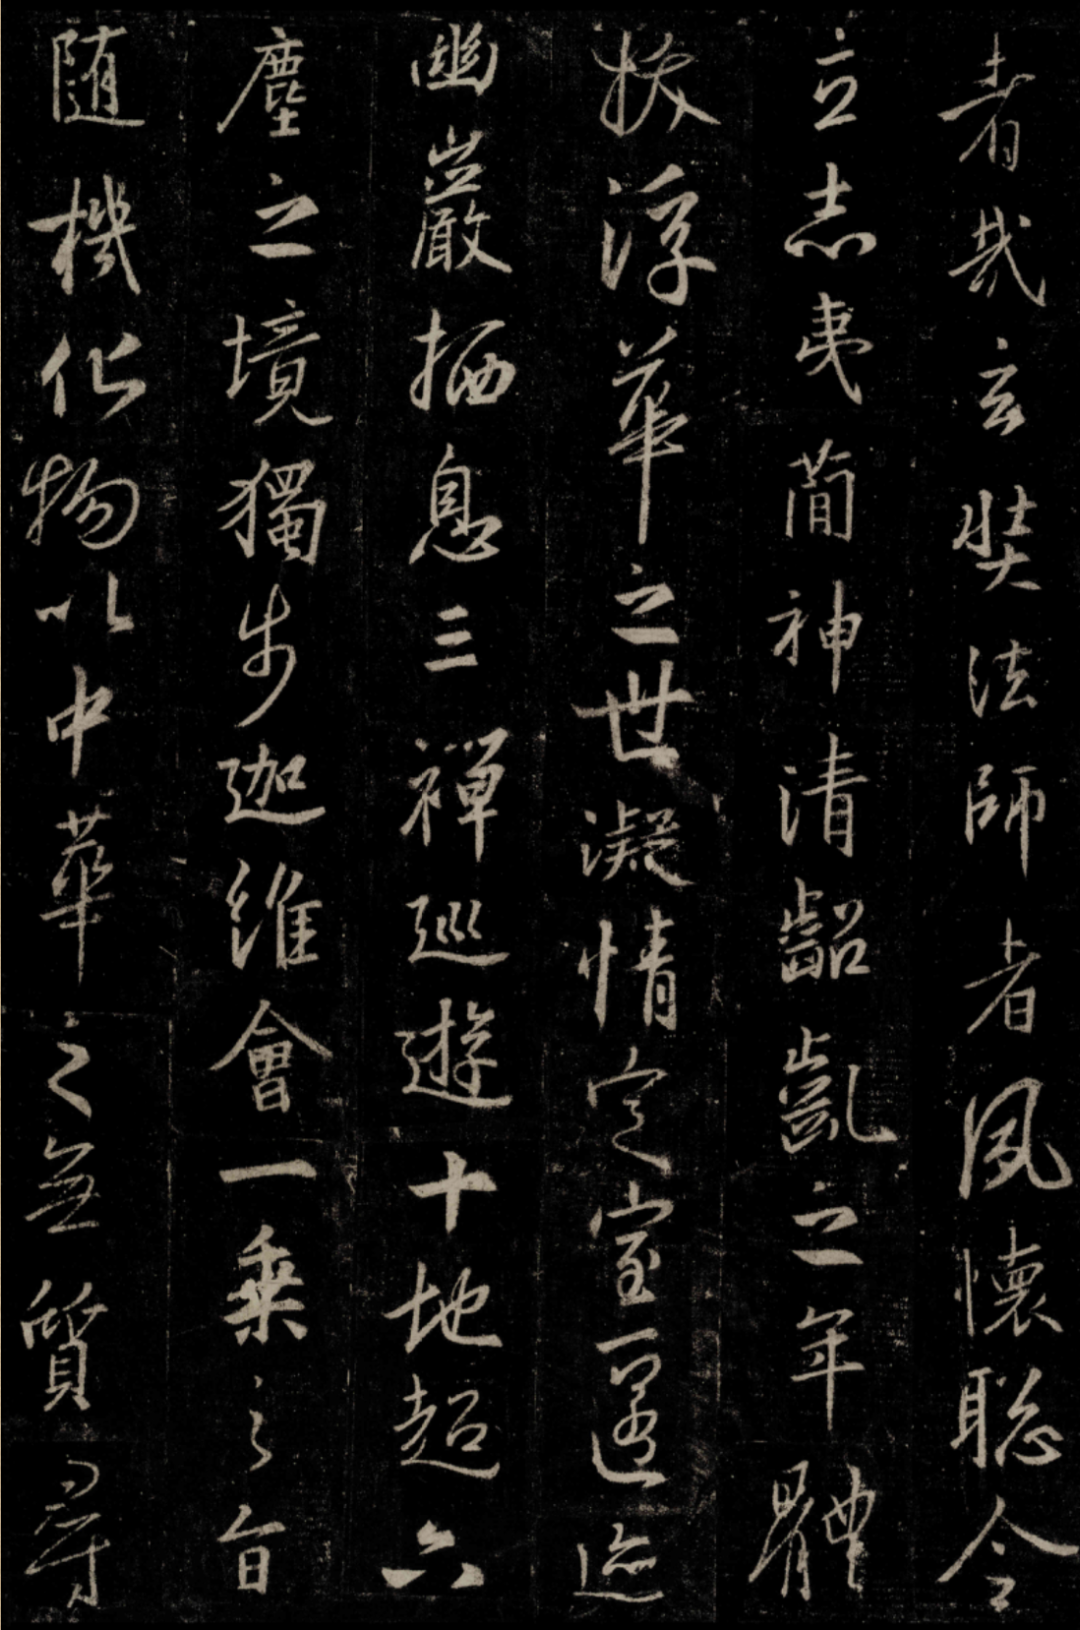 者哉玄奘法師者夙懷聰令
立志夷簡神清齠齔之年體
拔浮華之世凝情定室匿迹
幽巖栖息三禪巡遊十地超六
塵之境獨步迦維會一乘之旨
随機化物以中華之無質尋